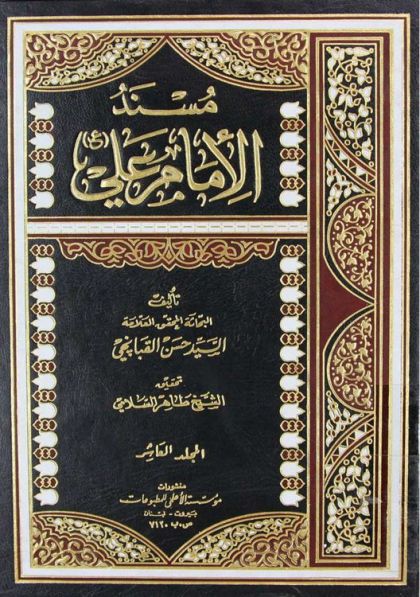 مُسْنَدُ
الإمام علي (ع)
تأليف
البحاثة المحقق العلامة
السيد حسن القبانچي
تحقيق
الشيخ طاهر السلامي
المجلد العاشر
منشورات
مؤسسة الأعلمي للمطبوعات
بيروت - لبنان
ص.ب ٧١٢٠